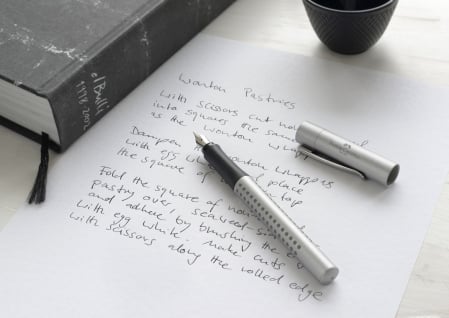 elBulli
1998-2002
Wonton Pastries
With scissors cut
into squares the same
as the wonton
Dampen wonton wrappers
with egg place
the square of on top
Fold the square of
pastry over, seaweed
and adhere by brushing the
with egg white. Make cuts
with scissors along the rolled edge